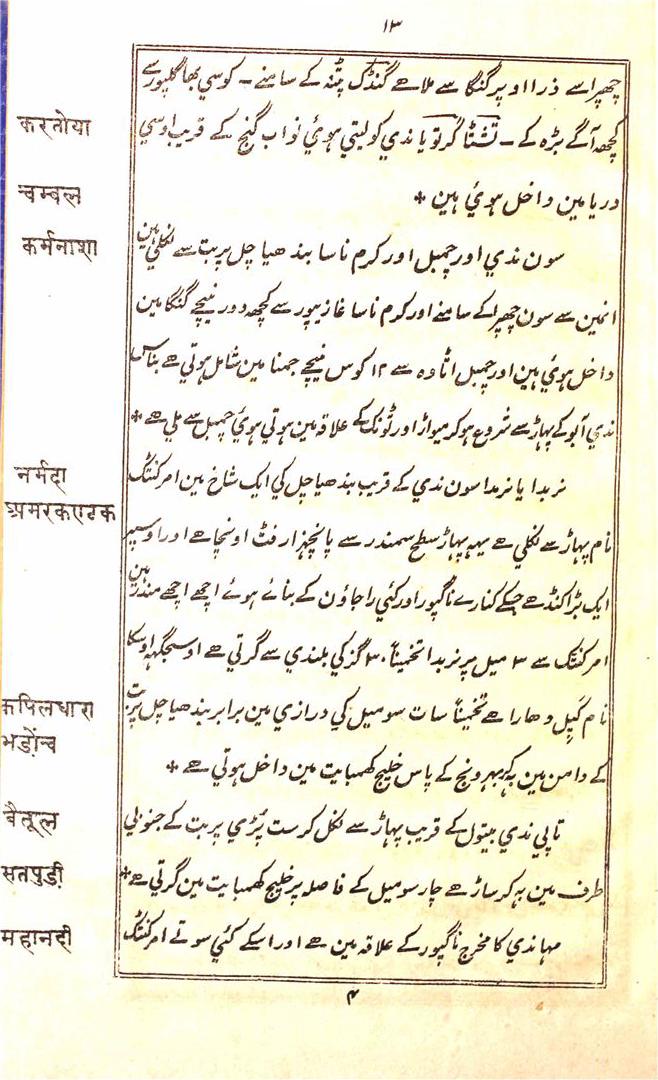 ۱۳
چھپرا سے ذرا اوپر گنگا سے ملا ھے گنڈک پٹنہ کے سامنے - کوسي بھاگلپور سے
کرتويا करतोया
کچھہ آگے بڑہ کے - تشٹا کرتويا ندي کو ليتي ہوئي نواب گنج کے قريب اوسي
चम्बल
دريا مين داخل ہوئي ہين *
कर्मनाशा
سون ندي اور چمبل اور کرم ناسا بندھيا چل پربت سے نکلي ہين
انمين سے سون چھپرا کے سامنے اور کرم ناسا غازيپور سے کچھہ دور نيچے گنگا مين
داخل ہوئي ہين اور چمبل اٹاوہ سے ۱۲ کوس نيچے جمنا مين شامل ہوتي ھے بناس
ندي آبو کے پہاڑ سے شروع ہو کر ميواڑ اور ٹونک کے علاقہ مين ہوتي ہوئي چمبل سے ملي ھے *
नर्मदा
نربدا يا نرمدا سون ندي کے قريب بندھيا چل کي ايک شاخ مين امرکنٹک
अमरकएटक
نام پہاڑ سے نکلي ھے يہہ پہاڑ سطح سمندر سے پانچہزار فٹ اونچا ھے اور اوسپر
ايک بڑا کنڈ ھے جسکے کنارے ناگپور اور کئي راجاؤن کے بنائے ہوئے اچھے اچھے مندر ہين
امرکنٹک سے ۳ ميل پر نربدا تخميناً ۳۰ گز کي بلندي سے گرتي ھے اوسجگہہ اوسکا
कपिलधारा
نام کپل دھارا ھے تخميناً سات سو ميل کي درازي مين برابر بندھيا چل پربت
भड़ोंच
کے دامن مين بہ کر بہرونچ کے پاس خليج کھمبايت مين داخل ہوتي ھے *
बैतूल
تاپي ندي بيتول کے قريب پہاڑ سے نکل کر ست پُڑي پربت کے جنوبي
सतपुड़ी
طرف مين بہ کر ساڑھے چار سو ميل کے فاصلہ پر خليج کھمبايت مين گرتي ھے *
महानदी
مہاندي کا مخرج ناگپور کے علاقہ مين ھے اور اسکے کئي سوتے امرکنٹک
۴